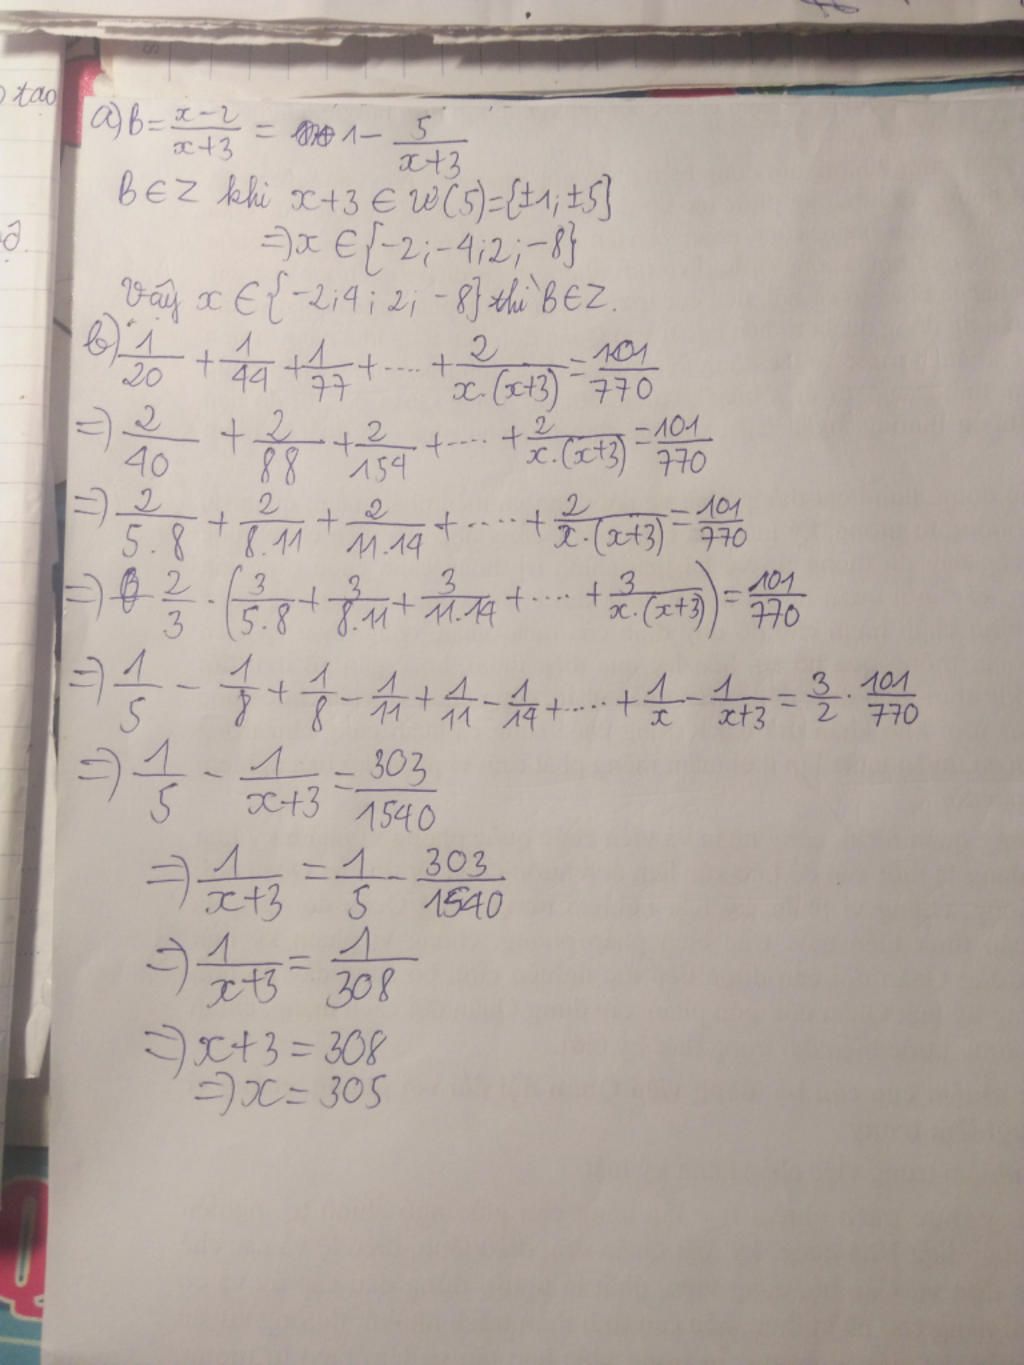 tạo
a) B = \frac{x-2}{x+3} = 1 - \frac{5}{x+3}
B ∈ Z khi x+3 ∈ Ư(5) = {±1; ±5}
=> x ∈ {-2; -4; 2; -8}
Vậy x ∈ {-2; 4; 2; -8} thì B ∈ Z.
b) \frac{1}{20} + \frac{1}{44} + \frac{1}{77} + .... + \frac{2}{x.(x+3)} = \frac{101}{770}
=> \frac{2}{40} + \frac{2}{88} + \frac{2}{154} + .... + \frac{2}{x.(x+3)} = \frac{101}{770}
=> \frac{2}{5.8} + \frac{2}{8.11} + \frac{2}{11.14} + .... + \frac{2}{x.(x+3)} = \frac{101}{770}
=> \frac{2}{3} . (\frac{3}{5.8} + \frac{3}{8.11} + \frac{3}{11.14} + .... + \frac{3}{x.(x+3)}) = \frac{101}{770}
=> \frac{1}{5} - \frac{1}{8} + \frac{1}{8} - \frac{1}{11} + \frac{1}{11} - \frac{1}{14} + .... + \frac{1}{x} - \frac{1}{x+3} = \frac{3}{2} . \frac{101}{770}
=> \frac{1}{5} - \frac{1}{x+3} = \frac{303}{1540}
=> \frac{1}{x+3} = \frac{1}{5} - \frac{303}{1540}
=> \frac{1}{x+3} = \frac{1}{308}
=> x+3 = 308
=> x = 305